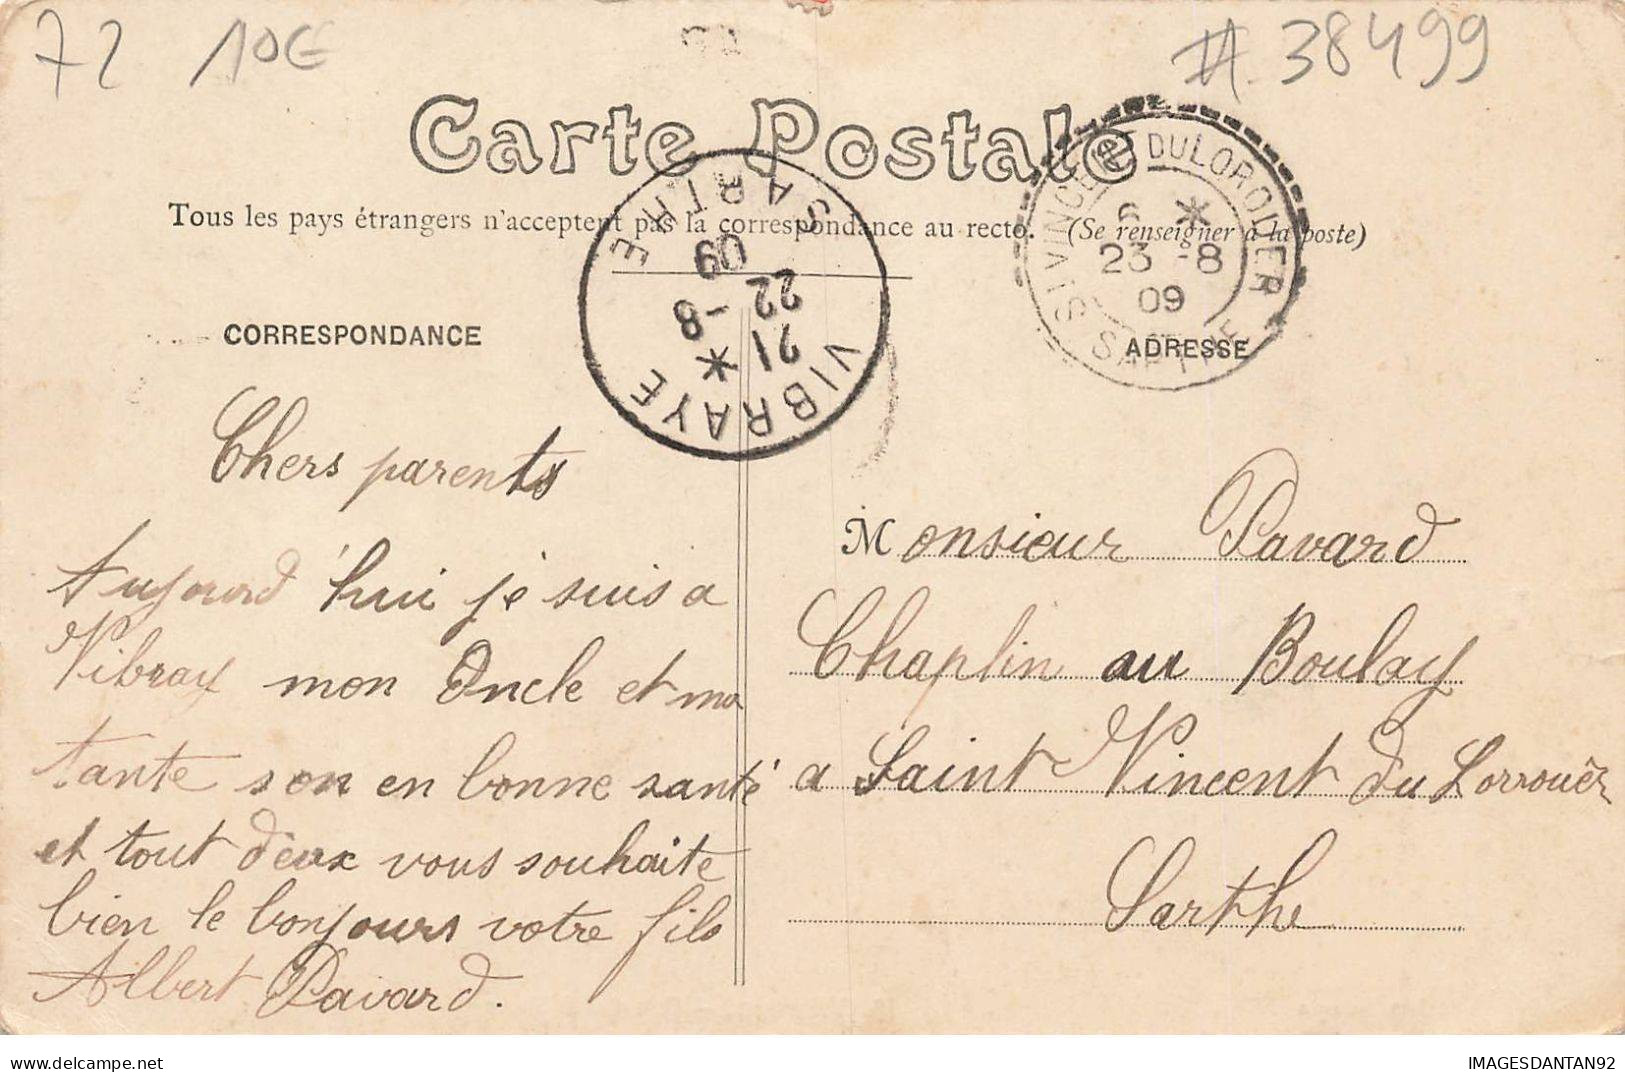 72 10€ # 38499
Carte Postale
Tous les pays étrangers n'acceptent pas la correspondance au recto. (Se renseigner à la poste)
VIBRAYE
SARTHE
21 *
22 -8
09
St VINCENT DU LOROUER
SARTHE
6 *
23 -8
09
CORRESPONDANCE
ADRESSE
Chers parents
Aujourd'hui je suis a
Vibray mon Oncle et ma
tante son en bonne santé
et tout deux vous souhaite
bien le bonjours votre fils
Albert Pavard.
Monsieur Pavard
Chaplin au Boulay
a Saint Vincent du Lorrouër
Sarthe
delcampe.net
IMAGESDANTAN92